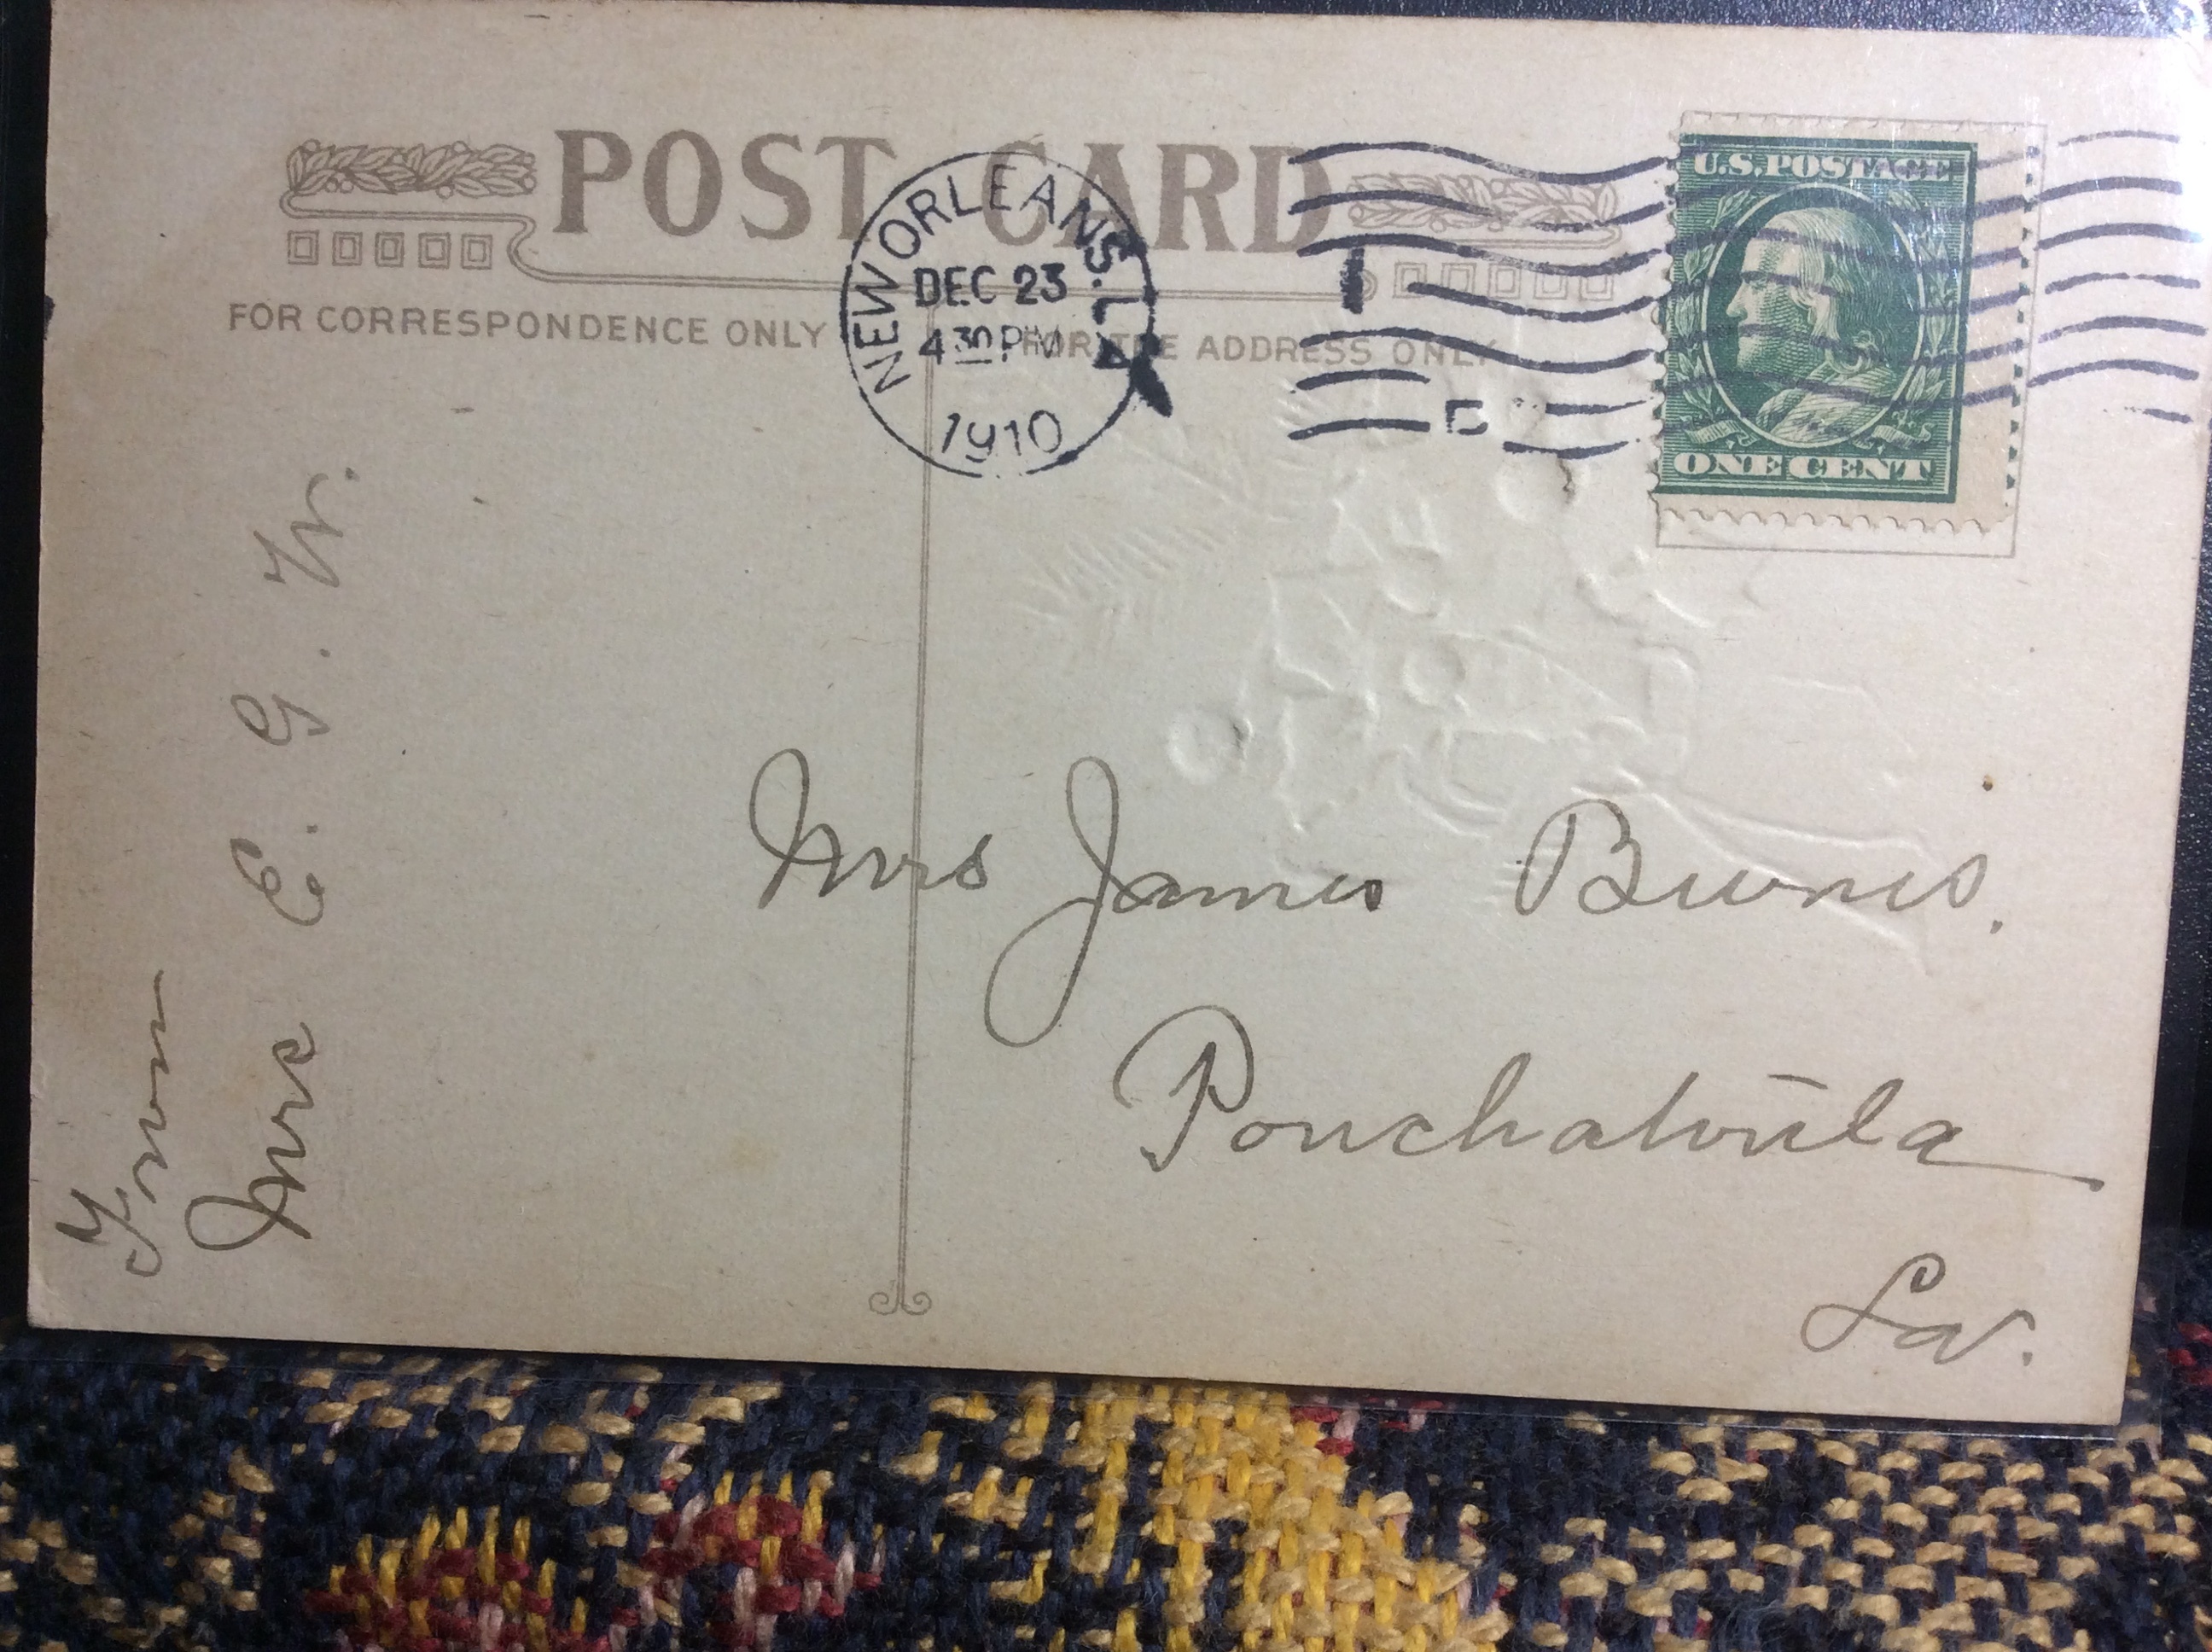 POST CARD
FOR CORRESPONDENCE ONLY
FOR THE ADDRESS ONLY
NEW ORLEANS. LA
DEC 23
4 30 PM
1910
U.S. POSTAGE
ONE CENT
From
Mrs E. G. W.
Mrs James Burns.
Ponchatoula
La.